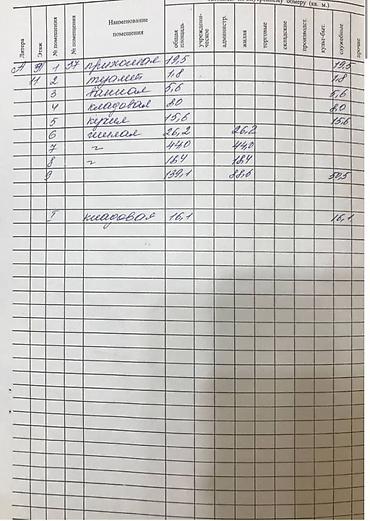 внутреннему обмеру (кв. м.)
Литера Этаж № помещения № помещения Наименование помещения общая площадь учрежденческое администр. жилая торговые складские производст. культ-быт. служебные прочие
А 1 37 прихожая 19,5 19,5
2 туалет 1.8 1.8
3 ванная 5,6 5,6
4 кладовая 8.0 8.0
5 кухня 15,6 15,6
6 жилая 26,2 26,2
7 -"- 44.0 44.0
8 -"- 18.4 18.4
9 139,1 88.6 50,5
I кладовая 16,1 16,1